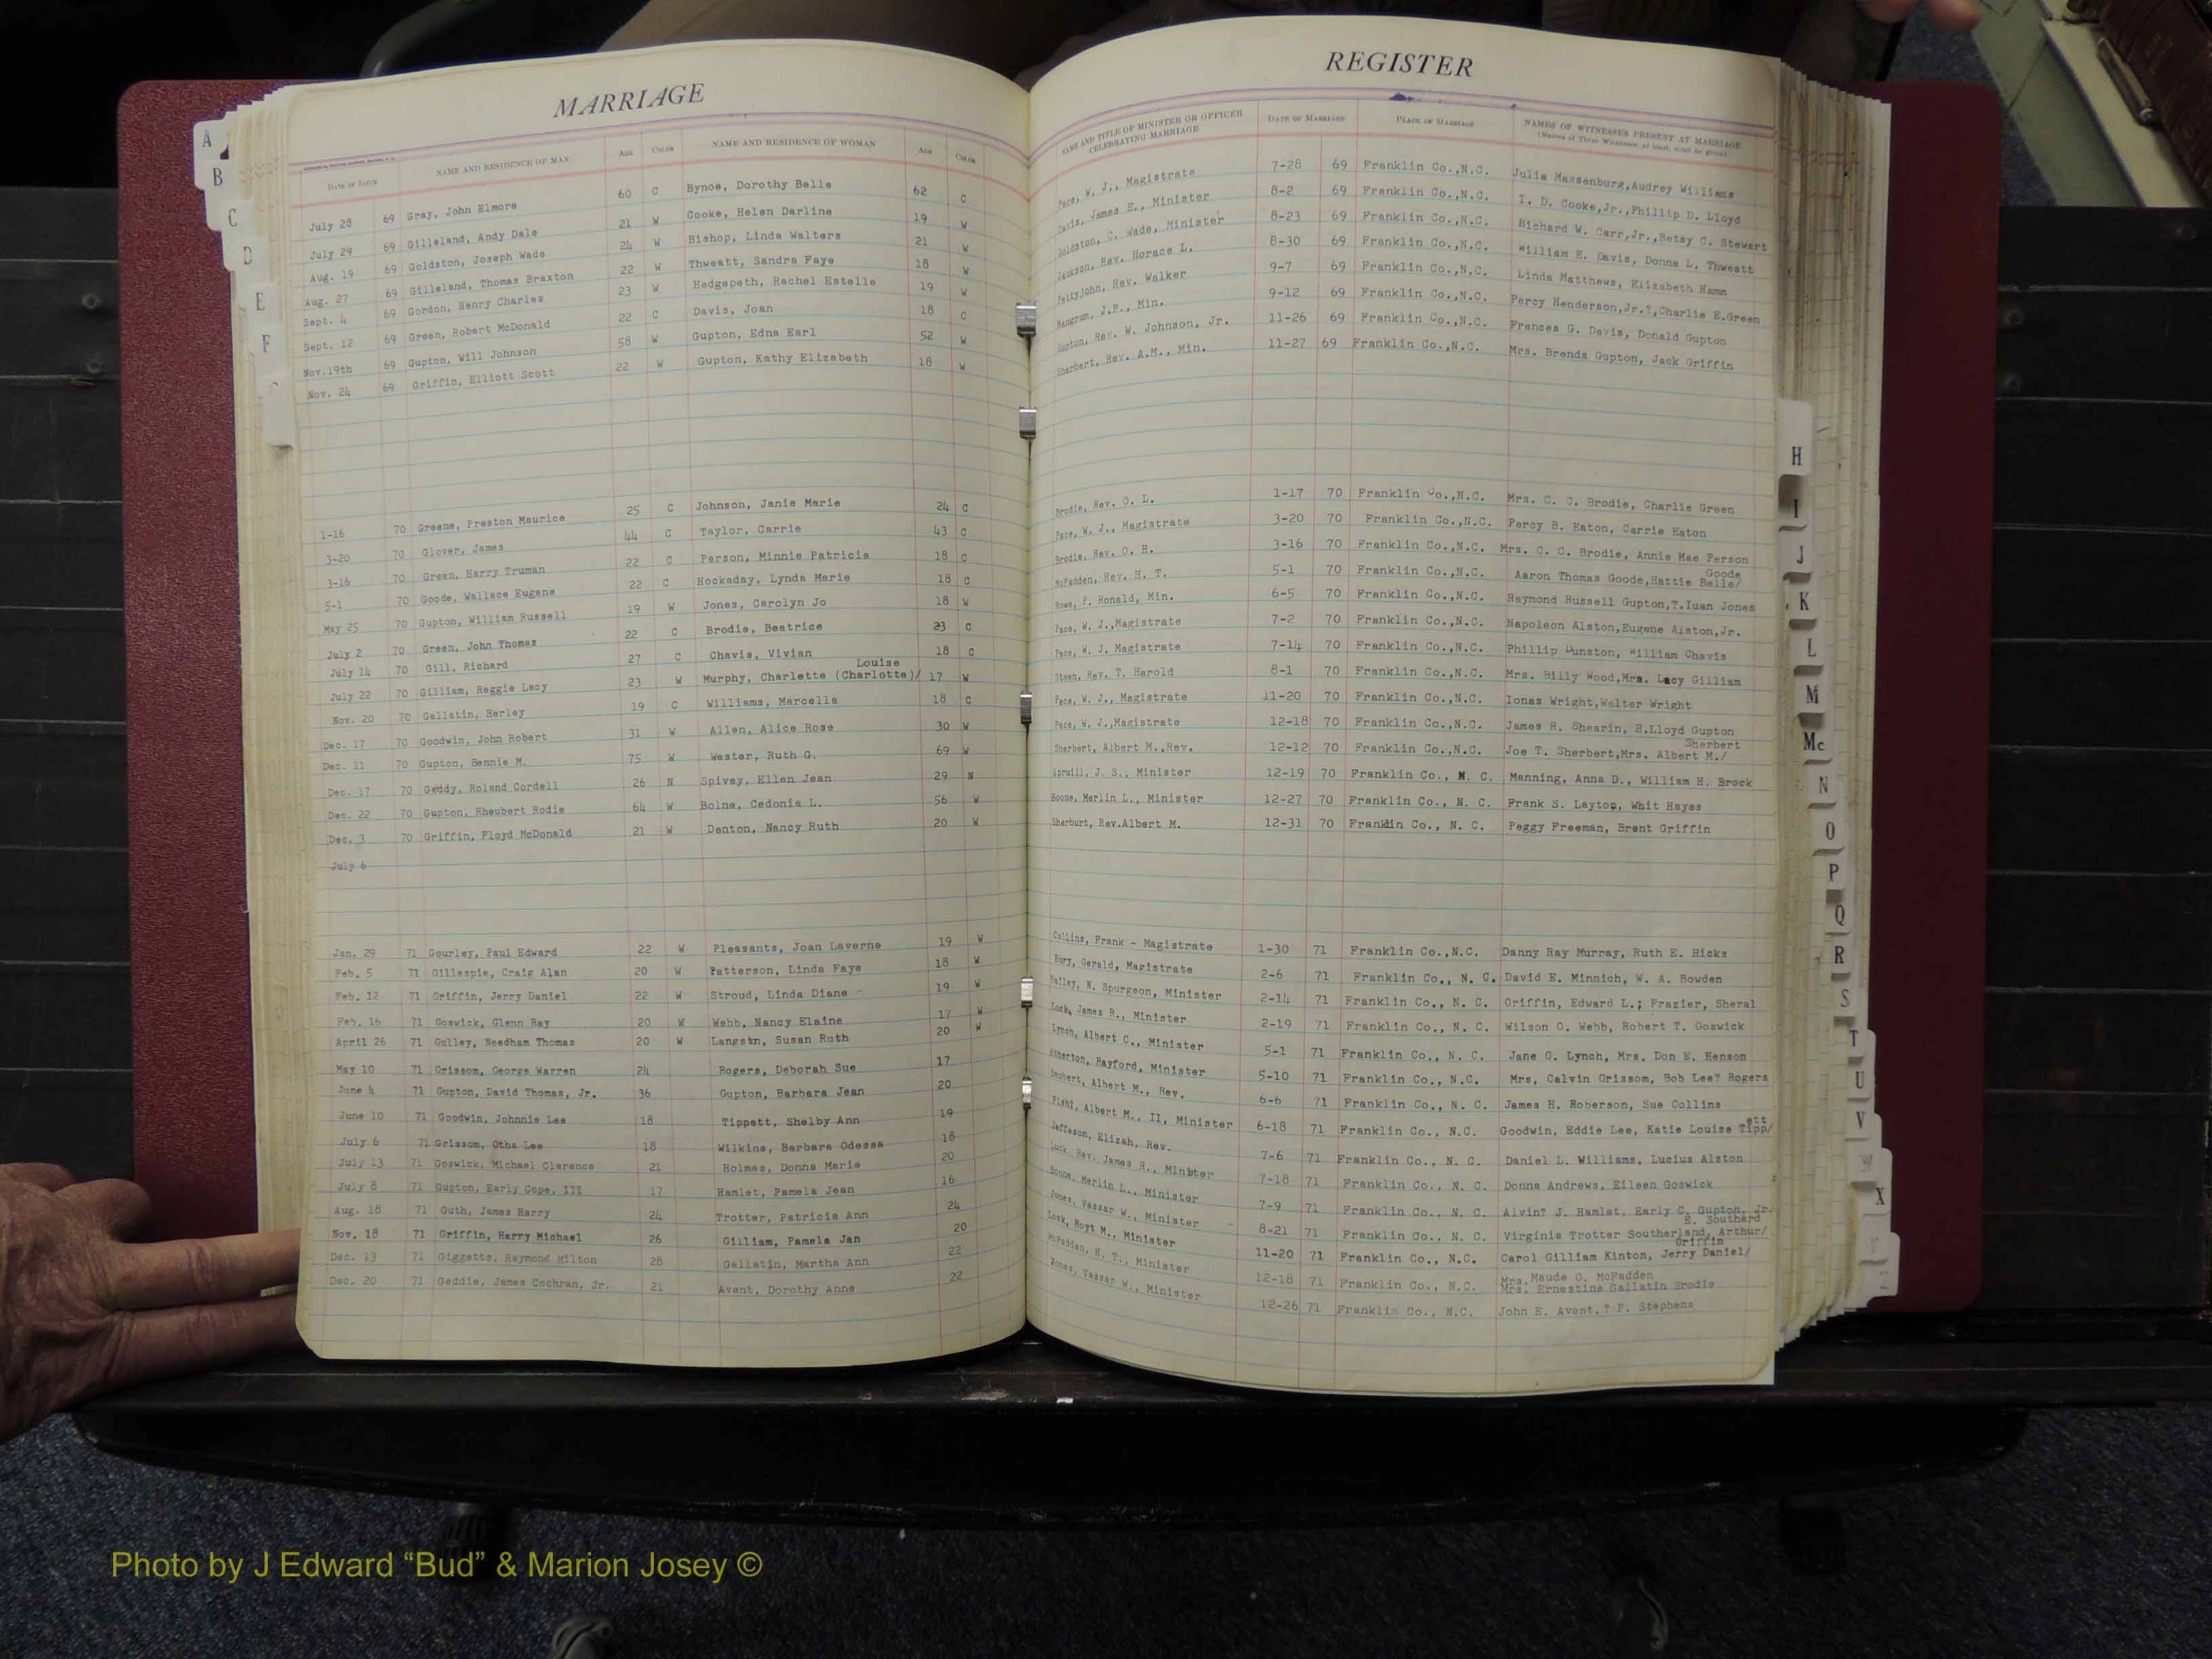 MARRIAGE
DATE OF ISSUE NAME AND RESIDENCE OF MAN AGE COLOR NAME AND RESIDENCE OF WOMAN AGE COLOR
July 28 69 Gray, John Elmore 60 C Bynoe, Dorothy Belle 62 C
July 29 69 Gilleland, Andy Dale 21 W Cooke, Helen Darline 19 W
Aug. 19 69 Goldston, Joseph Wade 24 W Bishop, Linda Walters 21 W
Aug. 27 69 Gilleland, Thomas Braxton 22 W Thweatt, Sandra Faye 18 W
Sept. 4 69 Gordon, Henry Charles 23 W Hedgepeth, Rachel Estelle 19 W
Sept. 12 69 Green, Robert McDonald 22 C Davis, Joan 18 C
Nov.19th 69 Gupton, Will Johnson 58 W Gupton, Edna Earl 52 W
Nov. 24 69 Griffin, Elliott Scott 22 W Gupton, Kathy Elizabeth 18 W
1-16 70 Greene, Preston Maurice 25 C Johnson, Janie Marie 24 C
3-20 70 Glover, James 44 C Taylor, Carrie 43 C
3-16 70 Green, Harry Truman 22 C Person, Minnie Patricia 18 C
5-1 70 Goode, Wallace Eugene 22 C Hockaday, Lynda Marie 18 C
May 25 70 Gupton, William Russell 19 W Jones, Carolyn Jo 18 W
July 2 70 Green, John Thomas 22 C Brodie, Beatrice 23 C
July 14 70 Gill, Richard 27 C Chavis, Vivian 18 C
Louise
July 22 70 Gilliam, Reggie Lacy 23 W Murphy, Charlette (Charlotte)/ 17 W
Nov. 20 70 Gallatin, Harley 19 C Williams, Marcella 18 C
Dec. 17 70 Goodwin, John Robert 31 W Allen, Alice Rose 30 W
Dec. 11 70 Gupton, Bennie M. 75 W Wester, Ruth G. 69 W
Dec. 17 70 Gaddy, Roland Cordell 26 N Spivey, Ellen Jean 29 N
Dec. 22 70 Gupton, Rheubert Rodie 64 W Bolne, Cedonia L. 56 W
Dec. 3 70 Griffin, Floyd McDonald 21 W Denton, Nancy Ruth 20 W
July 6
Jan. 29 71 Gourley, Paul Edward 22 W Pleasants, Joan Laverne 19 W
Feb. 5 71 Gillespie, Craig Alan 20 W Patterson, Linda Faye 18 W
Feb. 12 71 Griffin, Jerry Daniel 22 W Stroud, Linda Diane 19 W
Feb. 16 71 Goswick, Glenn Ray 20 W Webb, Nancy Elaine 17 W
April 26 71 Gulley, Needham Thomas 20 W Langstn, Susan Ruth 20 W
May 10 71 Grissom, George Warren 24 Rogers, Deborah Sue 17
June 4 71 Gupton, David Thomas, Jr. 36 Gupton, Barbara Jean 20
June 10 71 Goodwin, Johnnie Lee 18 Tippett, Shelby Ann 19
July 6 71 Grissom, Otha Lee 18 Wilkins, Barbara Odessa 18
July 13 71 Goswick, Michael Clarence 21 Holmes, Donna Marie 20
July 8 71 Gupton, Early Cope, III 17 Hamlet, Pamela Jean 16
Aug. 18 71 Guth, James Harry 24 Trotter, Patricia Ann 24
Nov. 18 71 Griffin, Harry Michael 26 Gilliam, Pamela Jan 20
Dec. 13 71 Giggetts, Raymond Milton 28 Gallatin, Martha Ann 22
Dec. 20 71 Geddie, James Cochran, Jr. 21 Avent, Dorothy Anne 22
REGISTER
NAME AND TITLE OF MINISTER OR OFFICER CELEBRATING MARRIAGE DATE OF MARRIAGE PLACE OF MARRIAGE NAMES OF WITNESSES PRESENT AT MARRIAGE
(Names of Three Witnesses, at least, must be given)
Pace, W. J., Magistrate 7-28 69 Franklin Co.,N.C. Julia Massenburg,Audrey Williams
Davis, James E., Minister 8-2 69 Franklin Co.,N.C. I. D. Cooke,Jr.,Phillip D. Lloyd
Goldston, C. Wade, Minister 8-23 69 Franklin Co.,N.C. Richard W. Carr,Jr.,Betsy C. Stewart
Jackson, Rev. Horace L. 8-30 69 Franklin Co.,N.C. William E. Davis, Donna L. Thweatt
Pettyjohn, Rev. Walker 9-7 69 Franklin Co.,N.C. Linda Matthews, Elizabeth Hamm
Mangrum, J.P., Min. 9-12 69 Franklin Co.,N.C. Percy Henderson,Jr.?,Charlie E.Green
Gupton, Rev. W. Johnson, Jr. 11-26 69 Franklin Co.,N.C. Frances G. Davis, Donald Gupton
Sherbert, Rev. A.M., Min. 11-27 69 Franklin Co.,N.C. Mrs. Brenda Gupton, Jack Griffin
Brodie, Rev. O. L. 1-17 70 Franklin Co.,N.C. Mrs. C. C. Brodie, Charlie Green
Pace, W. J., Magistrate 3-20 70 Franklin Co.,N.C. Percy B. Eaton, Carrie Eaton
Brodie, Rev. O. H. 3-16 70 Franklin Co.,N.C. Mrs. C. C. Brodie, Annie Mae Person
Goode
McPadden, Rev. H. T. 5-1 70 Franklin Co.,N.C. Aaron Thomas Goode,Hattie Belle/
Rowe, P. Ronald, Min. 6-5 70 Franklin Co.,N.C. Raymond Russell Gupton,T.Iuan Jones
Pace, W. J.,Magistrate 7-2 70 Franklin Co.,N.C. Napoleon Alston,Eugene Alston,Jr.
Pace, W. J. Magistrate 7-14 70 Franklin Co.,N.C. Phillip Dunston, William Chavis
Steen, Rev. T. Harold 8-1 70 Franklin Co.,N.C. Mrs. Billy Wood,Mrs. Lacy Gilliam
Pace, W. J., Magistrate 11-20 70 Franklin Co.,N.C. Ionas Wright,Walter Wright
Pace, W. J.,Magistrate 12-18 70 Franklin Co.,N.C. James R. Shearin, H.Lloyd Gupton
Sherbert
Sherbert, Albert M.,Rev. 12-12 70 Franklin Co.,N.C. Joe T. Sherbert,Mrs. Albert M./
Spruill, J. S., Minister 12-19 70 Franklin Co., N. C. Manning, Anna D., William H. Brock
Boone, Merlin L., Minister 12-27 70 Franklin Co., N. C. Frank S. Layton, Whit Hayes
Sherburt, Rev.Albert M. 12-31 70 Franklin Co., N. C. Peggy Freeman, Brent Griffin
Collins, Frank - Magistrate 1-30 71 Franklin Co.,N.C. Danny Ray Murray, Ruth E. Hicks
Bury, Gerald, Magistrate 2-6 71 Franklin Co., N. C. David E. Minnich, W. A. Bowden
N. Spurgeon, Minister 2-14 71 Franklin Co., N. C. Griffin, Edward L.; Frazier, Sheral
James R., Minister 2-19 71 Franklin Co., N. C. Wilson O. Webb, Robert T. Goswick
Lynch, Albert C., Minister 5-1 71 Franklin Co., N. C. Jane G. Lynch, Mrs. Don E. Henson
Rayford, Minister 5-10 71 Franklin Co., N.C. Mrs, Calvin Grissom, Bob Lee? Rogers
Albert M., Rev. 6-6 71 Franklin Co., N. C. James H. Roberson, Sue Collins
ett
Albert M., II, Minister 6-18 71 Franklin Co., N.C. Goodwin, Eddie Lee, Katie Louise Tipp/
Elizah, Rev. 7-6 71 Franklin Co., N. C. Daniel L. Williams, Lucius Alston
Rev. James R., Minister 7-18 71 Franklin Co., N. C. Donna Andrews, Eileen Goswick
Boone, Merlin L., Minister 7-9 71 Franklin Co., N. C. Alvin? J. Hamlet, Early C. Gupton, Jr.
E. Southard
Jones, Vassar W., Minister 8-21 71 Franklin Co., N. C. Virginia Trotter Southerland, Arthur/
Griffin
Hoyt M., Minister 11-20 71 Franklin Co., N.C. Carol Gilliam Kinton, Jerry Daniel/
McPadden, H. T., Minister 12-18 71 Franklin Co., N.C. Mrs. Maude O. McPadden
Mrs. Ernestine Gallatin Brodie
Jones, Vassar W., Minister 12-26 71 Franklin Co., N.C. John E. Avent,? P. Stephens
A
B
C
D
E
F
H
I
J
K
L
M
Mc
N
O
P
Q
R
S
T
U
V
W
X
Z
Photo by J Edward “Bud” & Marion Josey ©